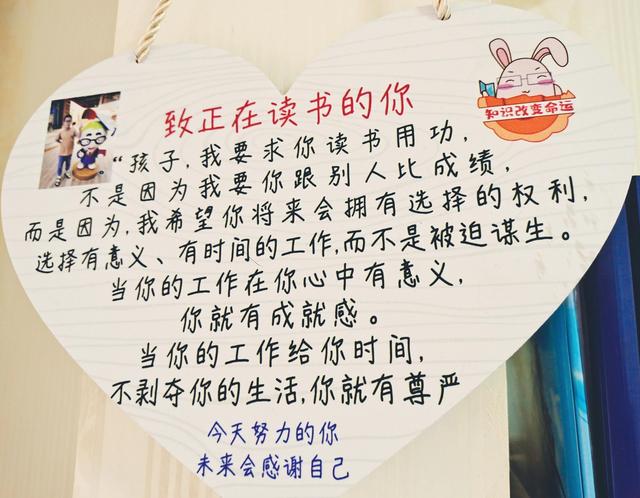 致正在读书的你
知识改变命运
“孩子,我要求你读书用功,
不是因为我要你跟别人比成绩,
而是因为,我希望你将来会拥有选择的权利,
选择有意义、有时间的工作,而不是被迫谋生。
当你的工作在你心中有意义,
你就有成就感。
当你的工作给你时间,
不剥夺你的生活,你就有尊严
今天努力的你
未来会感谢自己